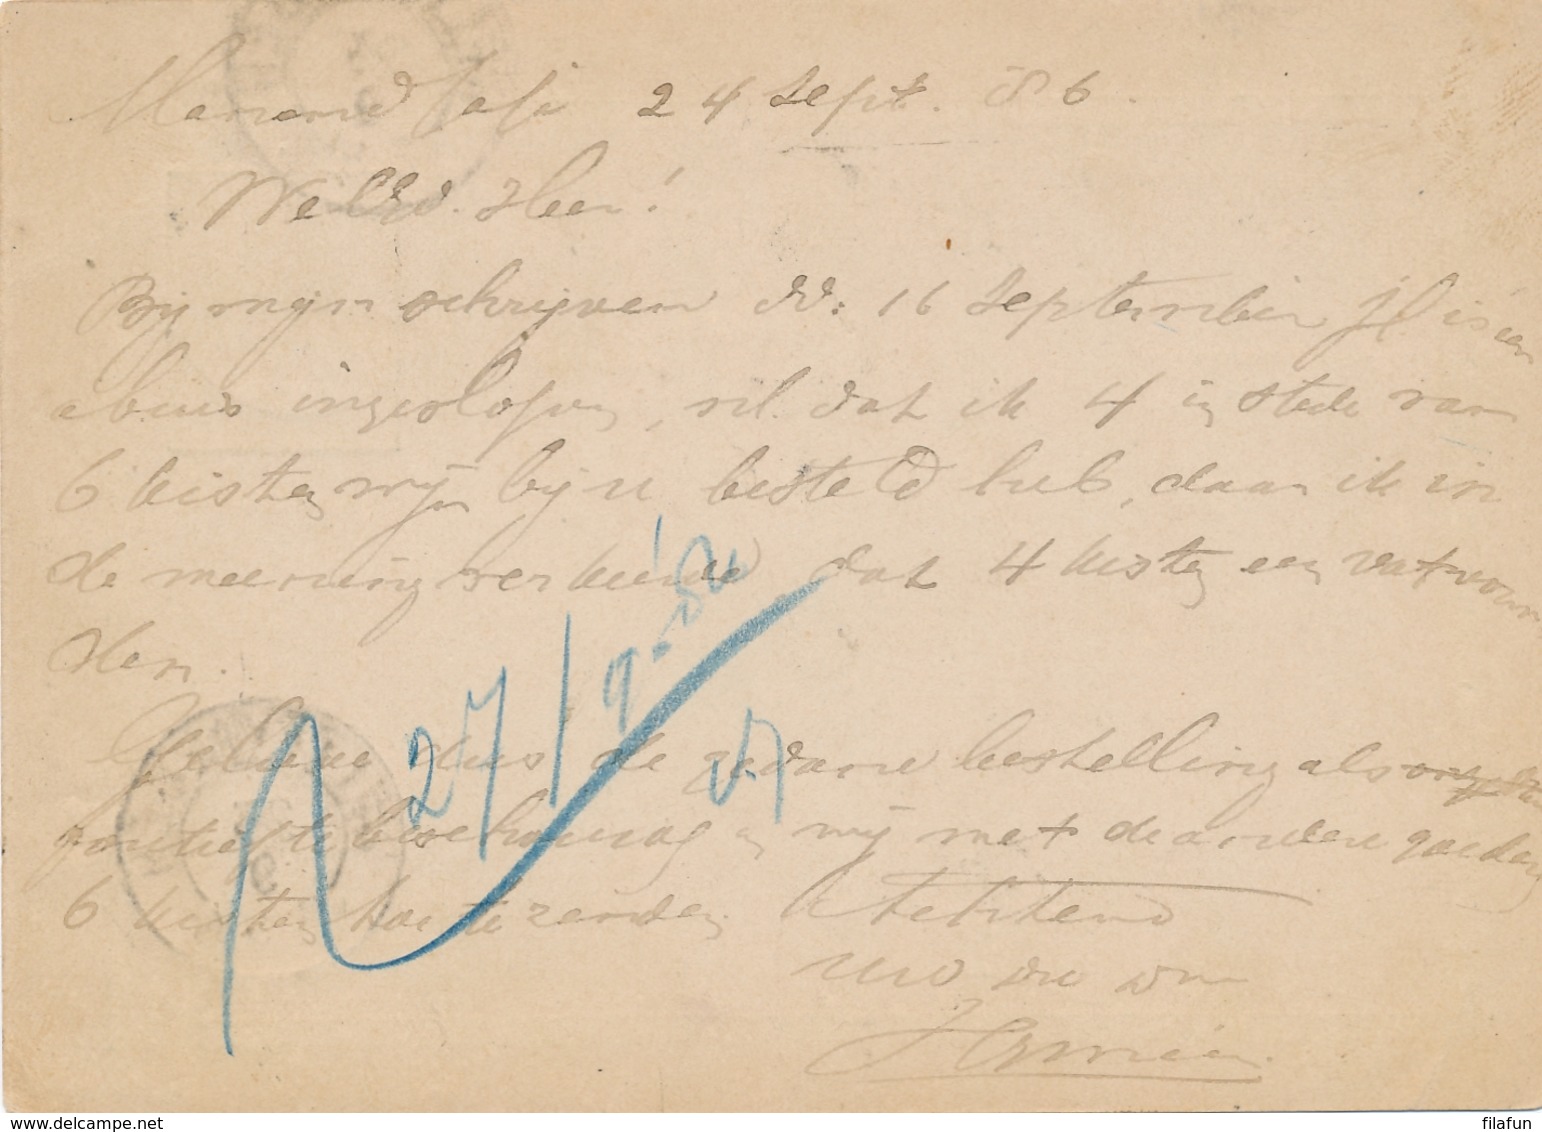 24 Sept. 86.
WelEd. Heer!
Bij mijn schrijven dd: 16 September jl is een
abuis ingeslopen, nl. dat ik 4 in stede van
6 kisten wijn bij u besteld heb, daar ik in
de meening verkeerde dat 4 kisten een vat
den.
27/9-86
dus de gedane bestelling als
te beschouwen en mij met de andere goederen
6 kisten toe te zenden. Achtend
UEd dw dr